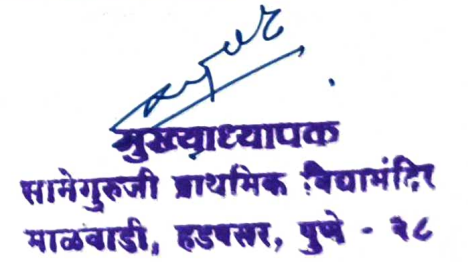 मुख्याध्यापक
सानेगुरुजी प्राथमिक विद्यामंदिर
माळवाडी, हडपसर, पुणे - २८